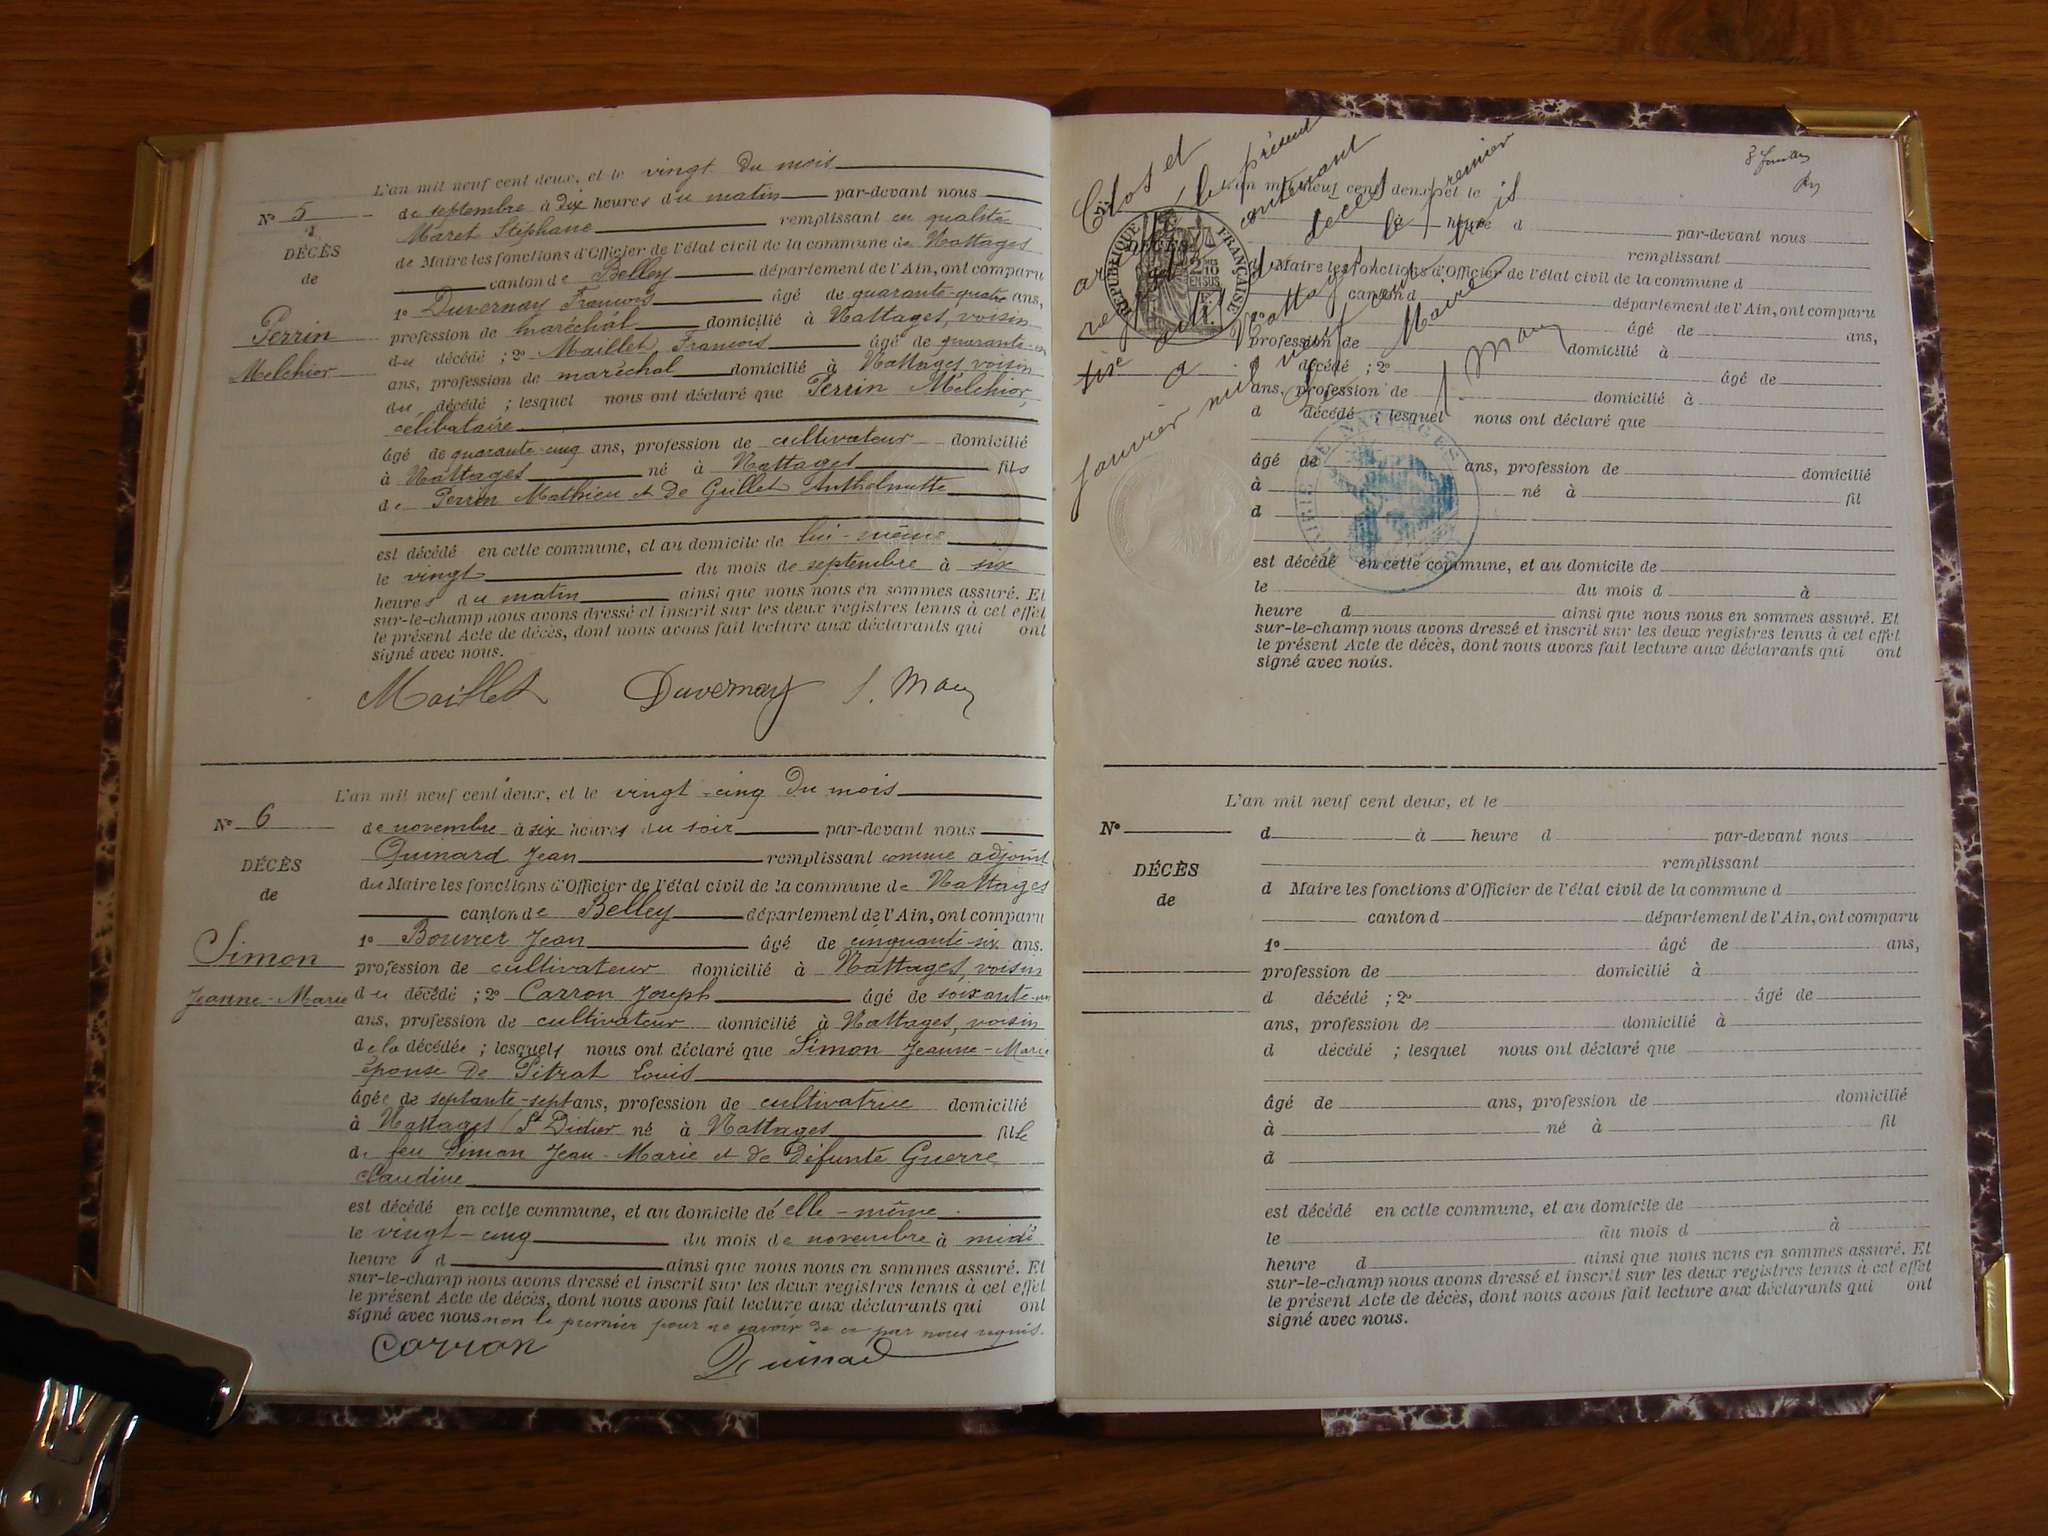 L'an mil neuf cent deux, et le vingt du mois
N° 5
de septembre à dix heures du matin par-devant nous
Maret Stéphane remplissant en qualité
DÉCÈS
de Maire les fonctions d'Officier de l'état civil de la commune de Nattages
de
canton de Belley département de l'Ain, ont comparu
1° Duvernay François âgé de quarante-quatre ans,
Perrin
profession de maréchal domicilié à Nattages, voisin
du décédé ; 2° Maillet François âgé de quarante-
Melchior
ans, profession de maréchal domicilié à Nattages voisin
du décédé ; lesquel nous ont déclaré que Perrin Melchior,
célibataire
âgé de quarante-cinq ans, profession de cultivateur domicilié
à Nattages né à Nattages fils
de Perrin Mathieu et De Grillet Anthelmette
est décédé en cette commune, et au domicile de lui-même
le vingt du mois de septembre à six
heures du matin ainsi que nous nous en sommes assuré. Et
sur-le-champ nous avons dressé et inscrit sur les deux registres tenus à cet effet
le présent Acte de décès, dont nous avons fait lecture aux déclarants qui ont
signé avec nous.
Maillet Duvernay
L'an mil neuf cent deux, et le vingt-cinq du mois
N° 6
de novembre à six heures du soir par-devant nous
Quinard Jean remplissant comme adjoint
DÉCÈS
du Maire les fonctions d'Officier de l'état civil de la commune de Nattages
de
canton de Belley département de l'Ain, ont comparu
1° Bouvier Jean âgé de cinquante-six ans.
Simon
profession de cultivateur domicilié à Nattages, voisin
Jeanne-Marie
du décédé ; 2° Carron Joseph âgé de soixante-
ans, profession de cultivateur domicilié à Nattages, voisin
de la décédée ; lesquels nous ont déclaré que Simon Jeanne-Marie
épouse de Pitrat Louis
âgée de septante-sept ans, profession de cultivatrice domicilié
à Nattages (St Didier né à Nattages fille
de feu Simon Jean-Marie et de défunte Guerre
Claudine
est décédé en cette commune, et au domicile de elle-même.
le vingt-cinq du mois de novembre à midi
heure d ainsi que nous nous en sommes assuré. Et
sur-le-champ nous avons dressé et inscrit sur les deux registres tenus à cet effet
le présent Acte de décès, dont nous avons fait lecture aux déclarants qui ont
signé avec nous. non le premier pour ne savoir de ce par nous requis.
Carron Quinard
Clos et
le présent
contenant
décès
premier
Janvier mil neuf cent
Nattages
Maire
RÉPUBLIQUE FRANÇAISE
L'an mil neuf cent deux, et le
heure d par-devant nous
remplissant
DÉCÈS
d Maire les fonctions d'Officier de l'état civil de la commune d
canton d département de l'Ain, ont comparu
âgé de ans,
profession de domicilié à
décédé ; 2° âgé de
ans, profession de domicilié à
d décédé ; lesquel nous ont déclaré que
âgé de ans, profession de domicilié
à né à fil
d
est décédé en cette commune, et au domicile de
le du mois d à
heure d ainsi que nous nous en sommes assuré. Et
sur-le-champ nous avons dressé et inscrit sur les deux registres tenus à cet effet
le présent Acte de décès, dont nous avons fait lecture aux déclarants qui ont
signé avec nous.
L'an mil neuf cent deux, et le
N°
d à heure d par-devant nous
remplissant
DÉCÈS
d Maire les fonctions d'Officier de l'état civil de la commune d
de
canton d département de l'Ain, ont comparu
1° âgé de ans,
profession de domicilié à
d décédé ; 2° âgé de
ans, profession de domicilié à
d décédé ; lesquel nous ont déclaré que
âgé de ans, profession de domicilié
à né à fil
d
est décédé en cette commune, et au domicile de
le du mois d à
heure d ainsi que nous nous en sommes assuré. Et
sur-le-champ nous avons dressé et inscrit sur les deux registres tenus à cet effet
le présent Acte de décès, dont nous avons fait lecture aux déclarants qui ont
signé avec nous.